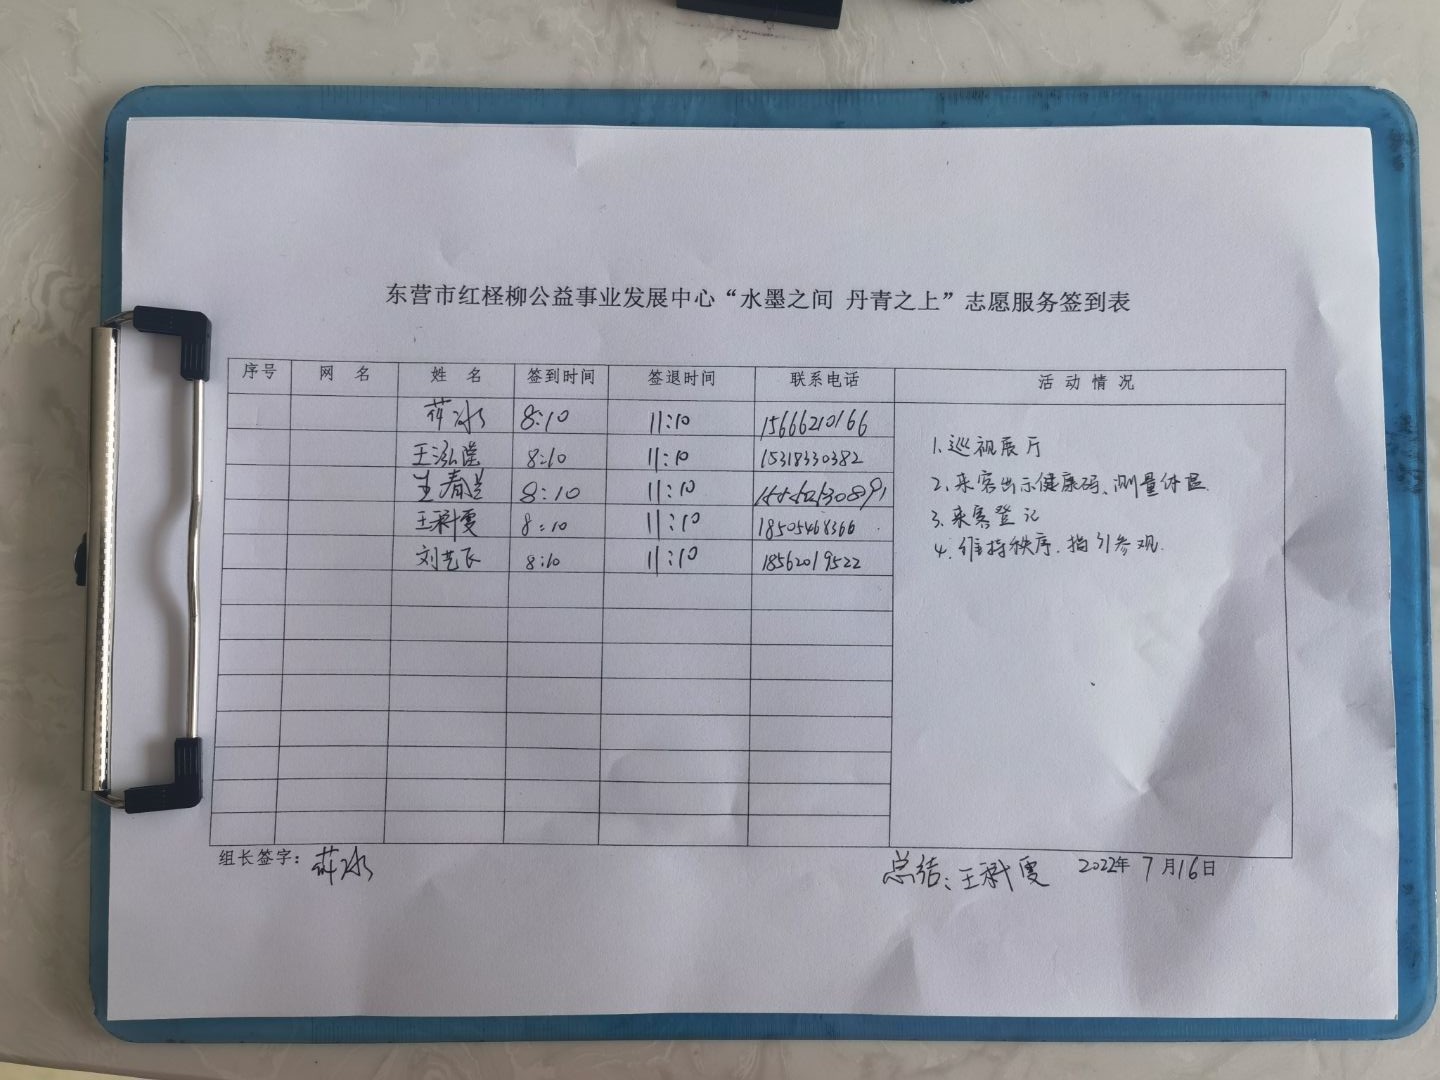 东营市红柽柳公益事业发展中心“水墨之间 丹青之上”志愿服务签到表
序号 网 名 姓 名 签到时间 签退时间 联系电话 活 动 情 况
薛冰 8:10 11:10 15666210166
王泓滢 8:10 11:10 15318330382
8:10 11:10
8:10 11:10 18505468366
刘艺飞 8:10 11:10 18562019522
1.巡视展厅
2.来客出示健康码、测量体温.
3.来客登记
4.维持秩序.指引参观.
组长签字：薛冰 总结：王 霞 2022年 7 月16日